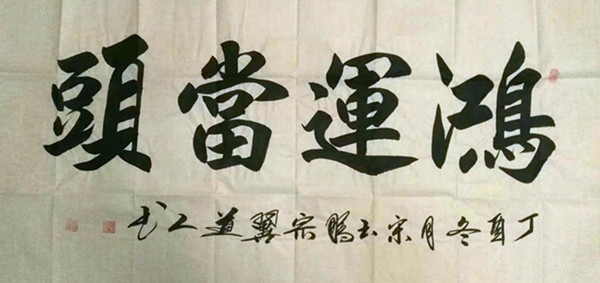 鴻運當頭
丁酉冬月宋玉鹏宗翼道人书